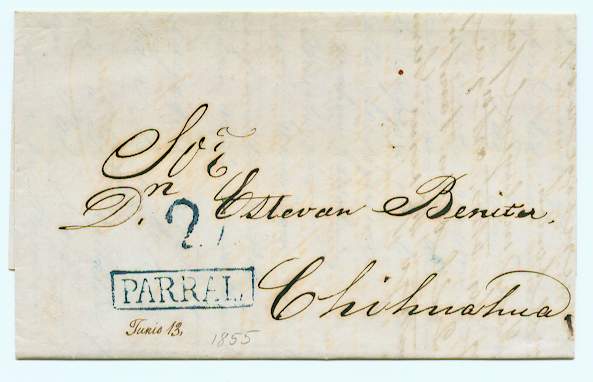 Sor
Dn. Estevan Benites.
2
PARRAL
Chihuahua.
Junio 13,
1855